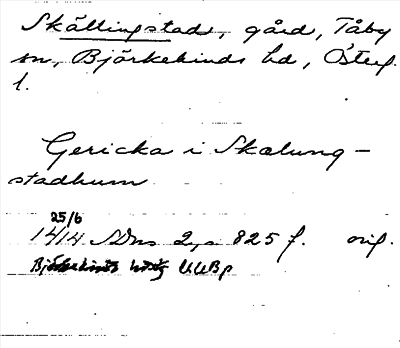 Skällingstads, gård, Tåby
sn, Björkekinds hd, Österg.
l.
Gericka i Skælung-
stadhum
25/6
1414 SDns 2, s 825 f. orig.
Björkekinds UUBp